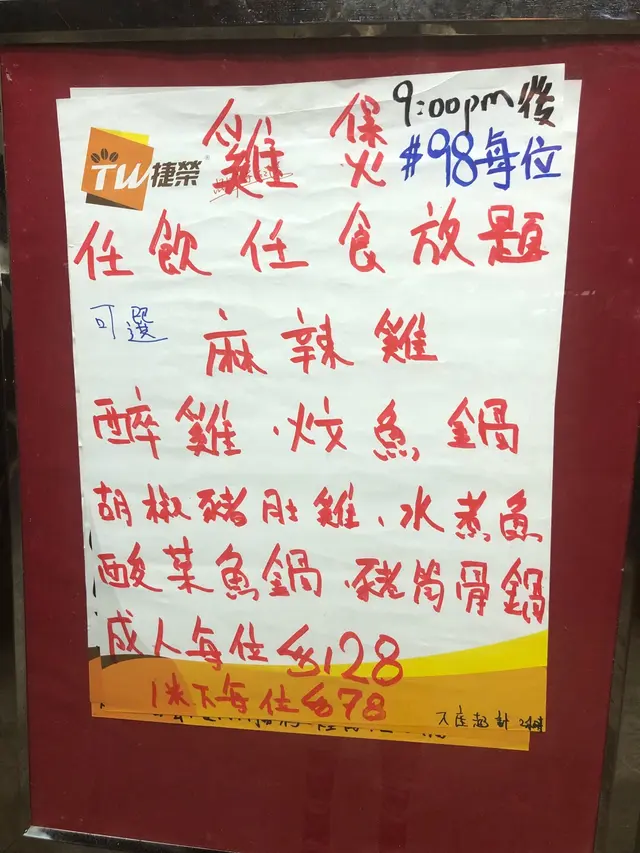 9:00pm後
#98每位
TW捷榮
雞煲
任飲任食放題
可選
麻辣雞
醉雞、炆魚鍋
胡椒豬肚雞、水煮魚
酸菜魚鍋、豬筒骨鍋
成人每位$128
1米下每位$78
入座起計2小時